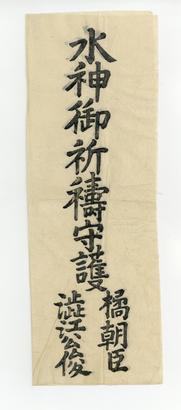 水神御祈禱守護
橘朝臣
澁江公俊